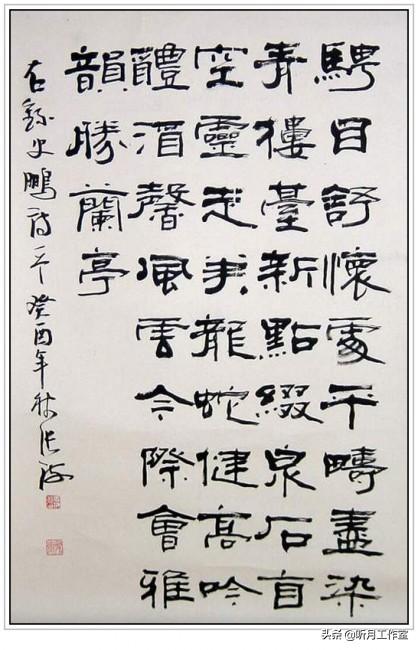 騁目舒懷處平疇盡染
青樓臺新點綴泉石
空靈走筆龍蛇健高吟
醴酒馨風雲今際會雅
韻勝蘭亭
右錄史鵬詩一首癸酉年秋張海
头条 @听月工作室